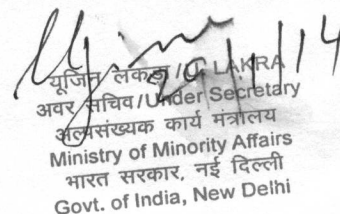 29/1/14
यूजिन लकड़ा / LAKRA
अवर सचिव/Under Secretary
अल्पसंख्यक कार्य मंत्रालय
Ministry of Minority Affairs
भारत सरकार, नई दिल्ली
Govt. of India, New Delhi